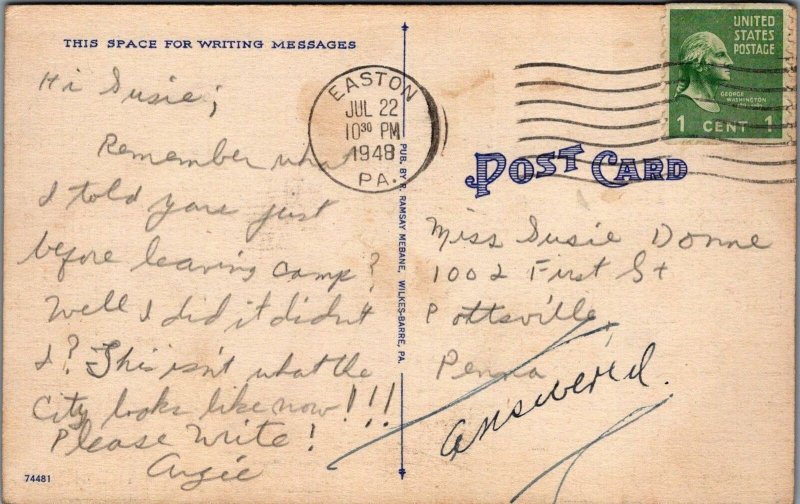 THIS SPACE FOR WRITING MESSAGES
Hi Susie;
Remember what
I told youre just
before leaving camp?
Well I did it didn't
I? This isn't what the
City looks like now!!!
Please Write!
Angie
74481
EASTON
JUL 22
10³⁰ PM
1948
PA.
PUB. BY R. RAMSAY MEBANE, WILKES-BARRE, PA.
UNITED
STATES
POSTAGE
GEORGE
WASHINGTON
1 CENT 1
POST CARD
Miss Susie Donne
1002 First St
Pottsville,
Penna
Answered.